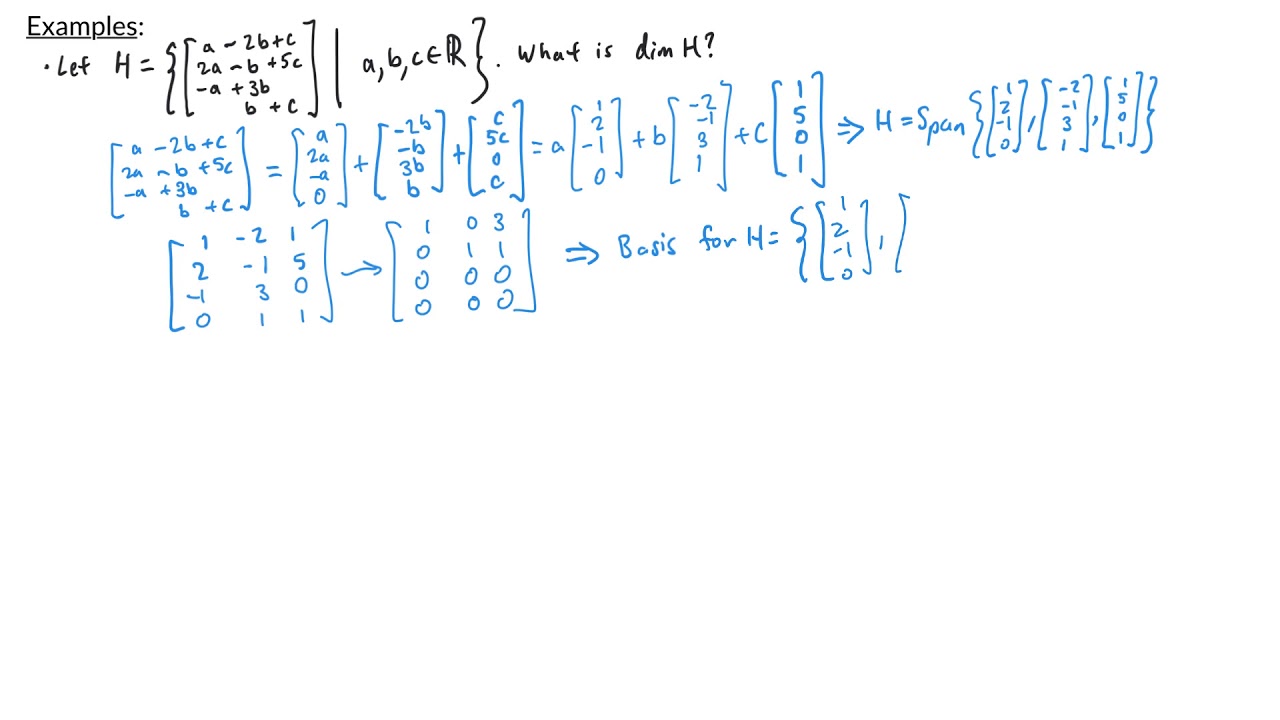 Examples:
• Let H = { [a - 2b + c; 2a - b + 5c; -a + 3b; b + c] | a, b, c ∈ ℝ }. What is dim H?
[a - 2b + c; 2a - b + 5c; -a + 3b; b + c] = [a; 2a; -a; 0] + [-2b; -b; 3b; b] + [c; 5c; 0; c] = a [1; 2; -1; 0] + b [-2; -1; 3; 1] + c [1; 5; 0; 1] ⇒ H = Span { [1; 2; -1; 0], [-2; -1; 3; 1], [1; 5; 0; 1] }
[1 -2 1; 2 -1 5; -1 3 0; 0 1 1] → [1 0 3; 0 1 1; 0 0 0; 0 0 0] ⇒ Basis for H = { [1; 2; -1; 0], [